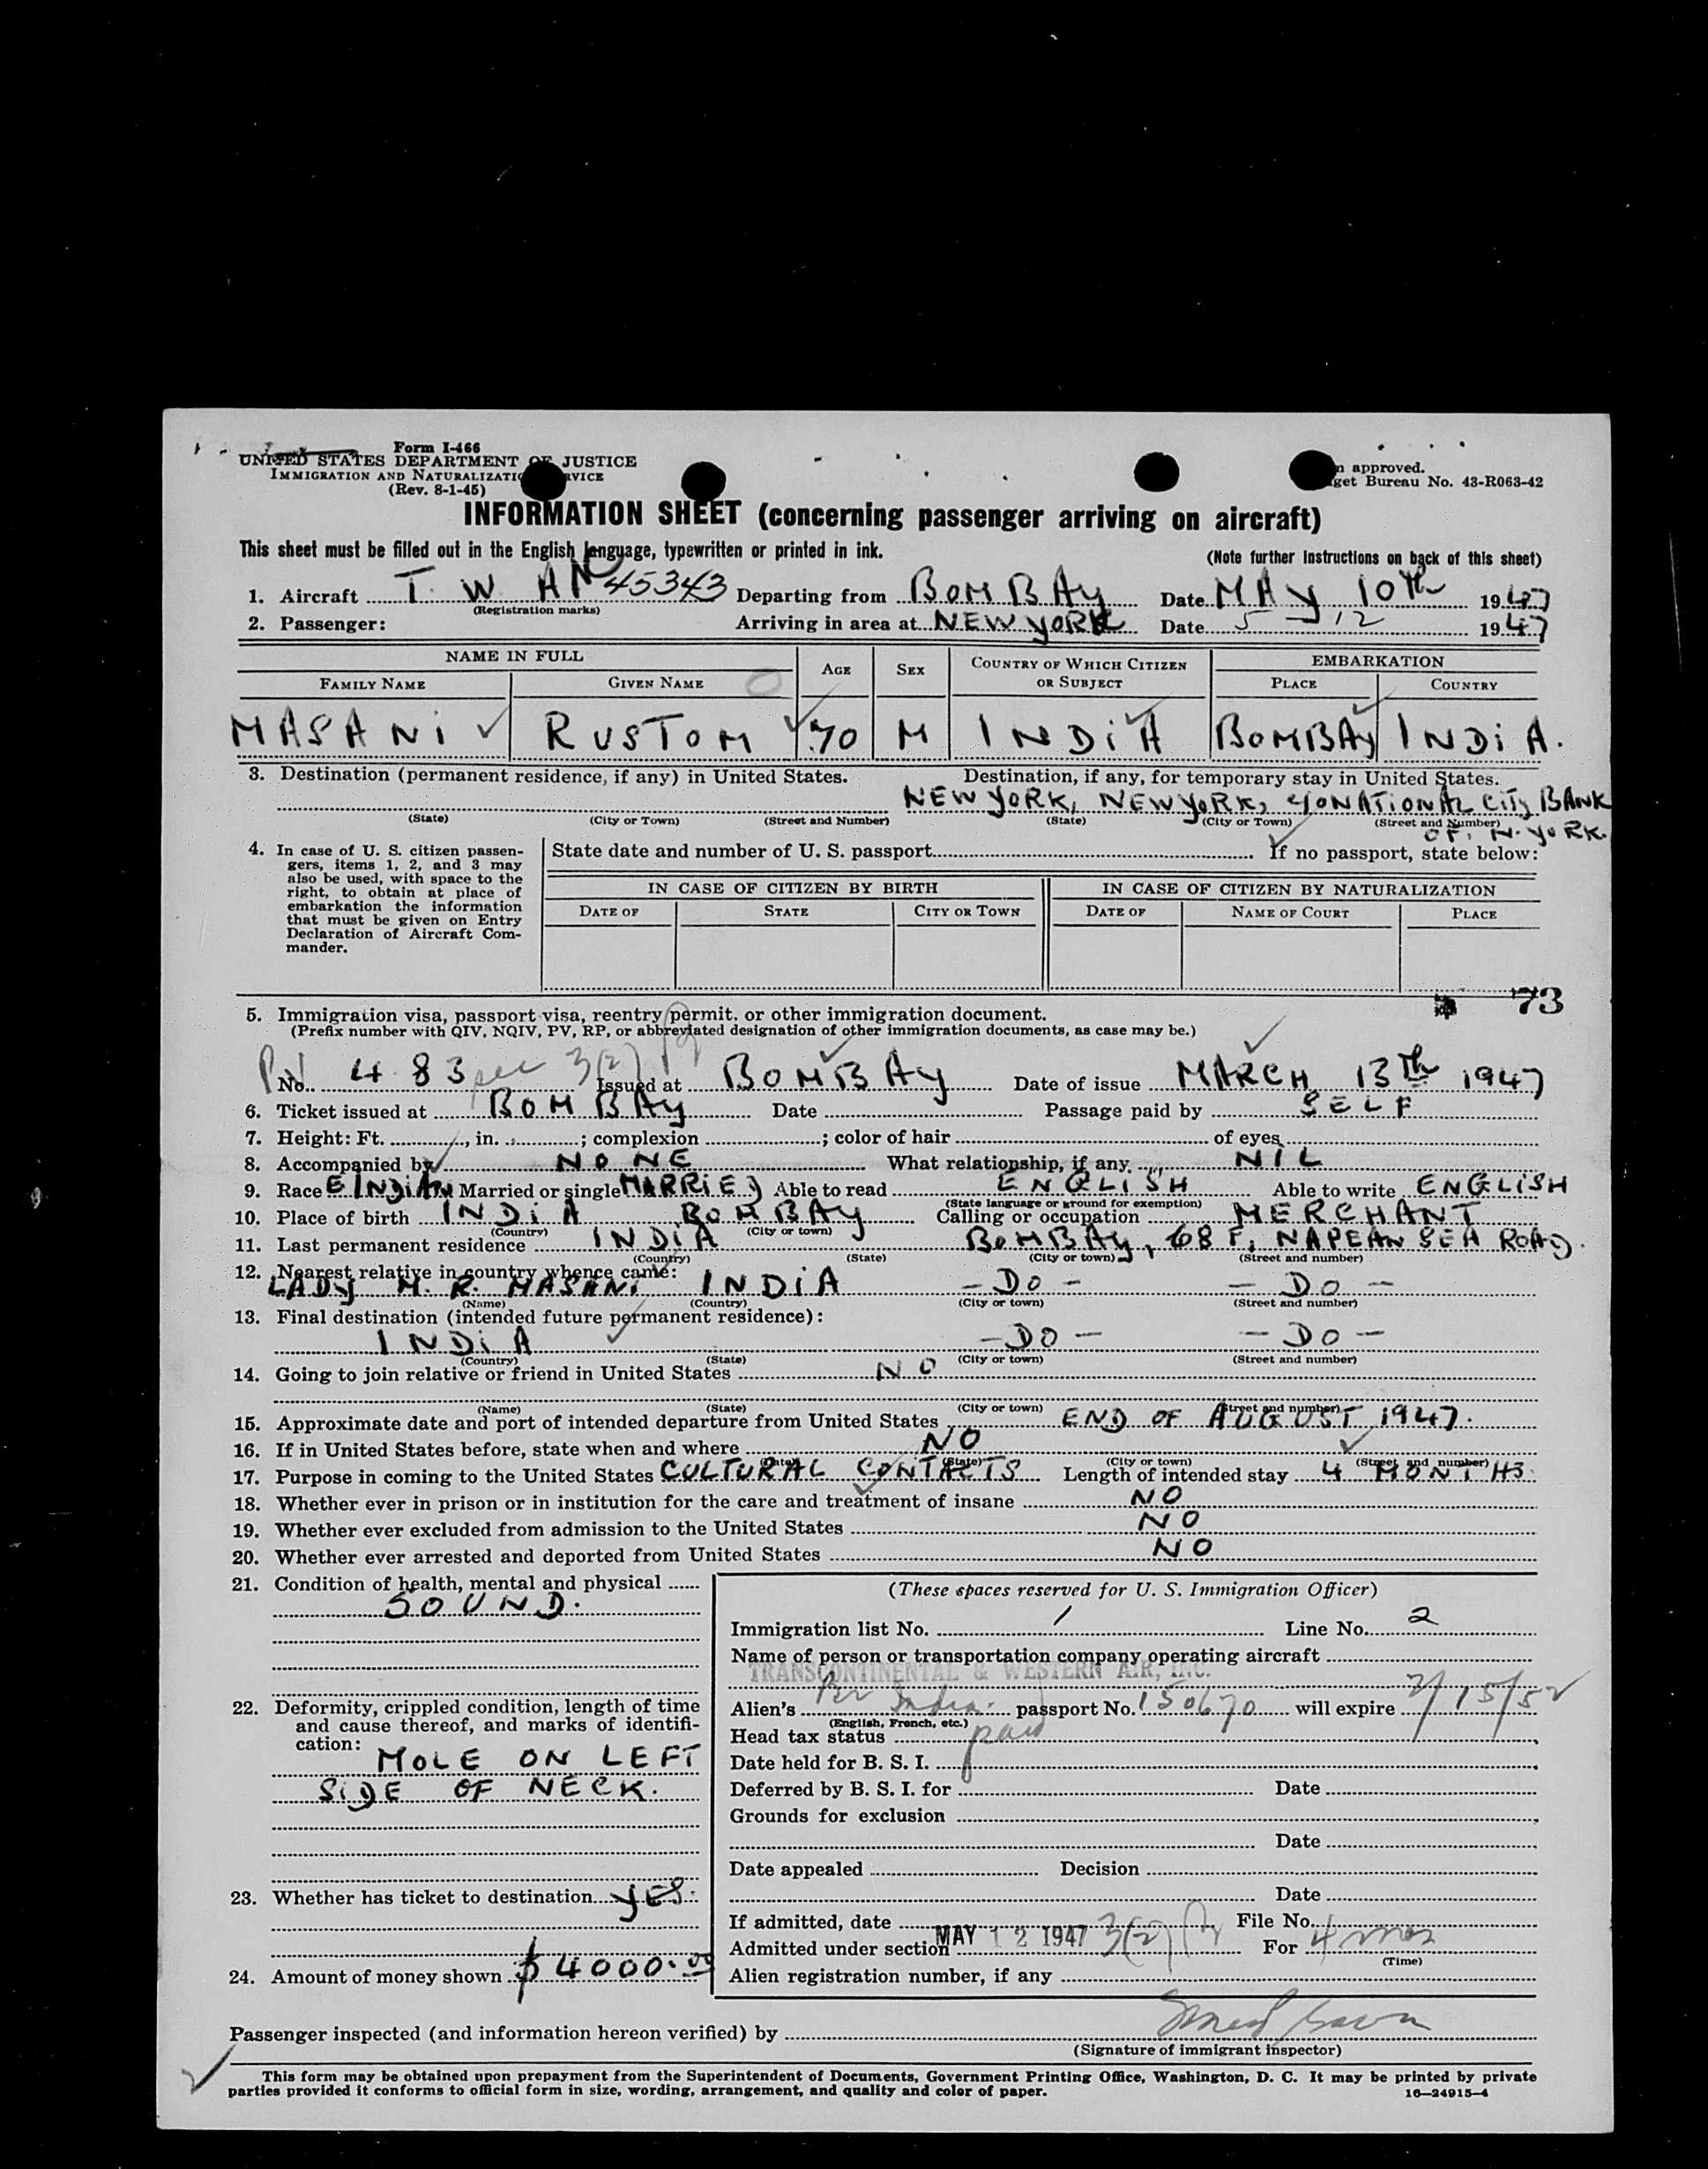 Form I-466
UNITED STATES DEPARTMENT OF JUSTICE
IMMIGRATION AND NATURALIZATION SERVICE
(Rev. 8-1-45)
approved.
get Bureau No. 43-R063-42
INFORMATION SHEET (concerning passenger arriving on aircraft)
This sheet must be filled out in the English language, typewritten or printed in ink.
(Note further instructions on back of this sheet)
1. Aircraft T W A N 45343 Departing from BOMBAY Date MAY 10th 1947
(Registration marks)
2. Passenger: Arriving in area at NEW YORK Date 5-12 1947
NAME IN FULL AGE SEX COUNTRY OF WHICH CITIZEN OR SUBJECT EMBARKATION
FAMILY NAME GIVEN NAME PLACE COUNTRY
MASANI RUSTOM 70 M INDIA BOMBAY INDIA.
3. Destination (permanent residence, if any) in United States. Destination, if any, for temporary stay in United States.
NEW YORK, NEW YORK, C/O NATIONAL CITY BANK
(State) (City or Town) (Street and Number) (State) (City or Town) (Street and Number)
OF. N. YORK.
4. In case of U. S. citizen passengers, items 1, 2, and 3 may
also be used, with space to the
right, to obtain at place of
embarkation the information
that must be given on Entry
Declaration of Aircraft Commander.
State date and number of U. S. passport If no passport, state below:
IN CASE OF CITIZEN BY BIRTH IN CASE OF CITIZEN BY NATURALIZATION
DATE OF STATE CITY OR TOWN DATE OF NAME OF COURT PLACE
73
5. Immigration visa, passport visa, reentry permit, or other immigration document.
(Prefix number with QIV, NQIV, PV, RP, or abbreviated designation of other immigration documents, as case may be.)
PV No. 483 sec 3(2) Issued at BOMBAY Date of issue MARCH 13th 1947
6. Ticket issued at BOMBAY Date Passage paid by SELF
7. Height: Ft. , in. ; complexion ; color of hair of eyes
8. Accompanied by NONE What relationship, if any NIL
9. Race E INDIAN Married or single MARRIED Able to read ENGLISH Able to write ENGLISH
(State language or ground for exemption)
10. Place of birth INDIA BOMBAY Calling or occupation MERCHANT
(Country) (City or town)
11. Last permanent residence INDIA BOMBAY, 68 F, NAPEAN SEA ROAD.
(Country) (State) (City or town) (Street and number)
12. Nearest relative in country whence came:
LADY M. R. MASANI INDIA - DO - - DO -
(Name) (Country) (City or town) (Street and number)
13. Final destination (intended future permanent residence):
INDIA - DO - - DO -
(Country) (State) (City or town) (Street and number)
14. Going to join relative or friend in United States NO
(Name) (State) (City or town) (Street and number)
15. Approximate date and port of intended departure from United States END OF AUGUST 1947.
16. If in United States before, state when and where NO
(Date) (State) (City or town) (Street and number)
17. Purpose in coming to the United States CULTURAL CONTACTS Length of intended stay 4 MONTHS
18. Whether ever in prison or in institution for the care and treatment of insane NO
19. Whether ever excluded from admission to the United States NO
20. Whether ever arrested and deported from United States NO
21. Condition of health, mental and physical
SOUND.
22. Deformity, crippled condition, length of time
and cause thereof, and marks of identification:
MOLE ON LEFT
SIDE OF NECK.
23. Whether has ticket to destination YES.
24. Amount of money shown $4000.00
(These spaces reserved for U. S. Immigration Officer)
Immigration list No. 1 Line No. 2
Name of person or transportation company operating aircraft
TRANSCONTINENTAL & WESTERN AIR, INC.
Alien's Br India passport No. 150670 will expire 2/15/52
(English, French, etc.)
Head tax status paid
Date held for B. S. I.
Deferred by B. S. I. for Date
Grounds for exclusion
Date
Date appealed Decision
Date
If admitted, date MAY 12 1947 File No.
Admitted under section 3(2) For 4 mos
(Time)
Alien registration number, if any
Passenger inspected (and information hereon verified) by
(Signature of immigrant inspector)
This form may be obtained upon prepayment from the Superintendent of Documents, Government Printing Office, Washington, D. C. It may be printed by private
parties provided it conforms to official form in size, wording, arrangement, and quality and color of paper.
16—24915-4